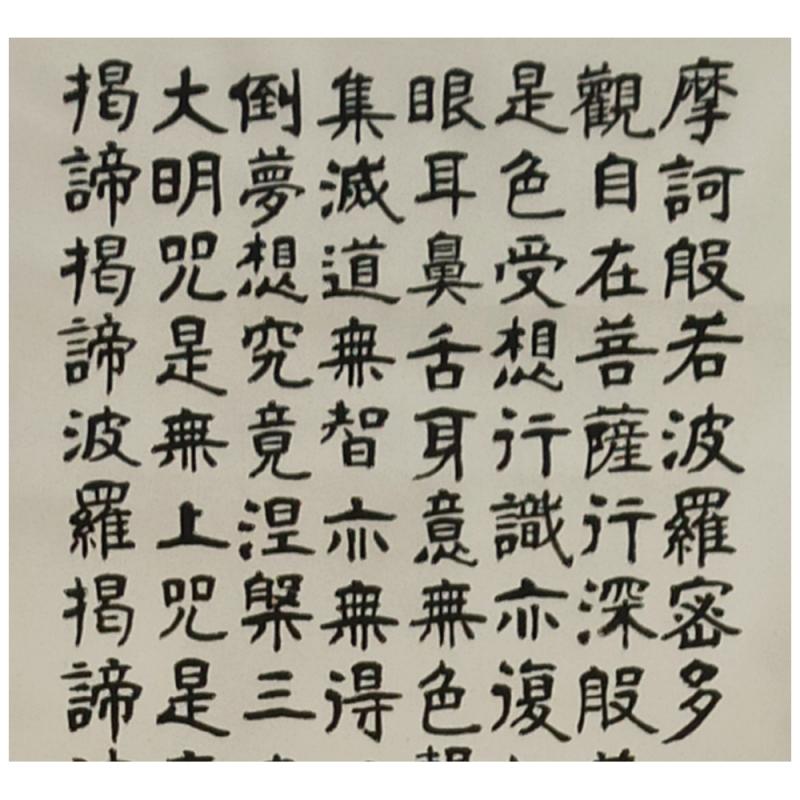 摩訶般若波羅密多
觀自在菩薩行深般
是色受想行識亦復
眼耳鼻舌身意無色
集滅道無智亦無得
倒夢想究竟涅槃三
大明咒是無上咒是
揭諦揭諦波羅揭諦